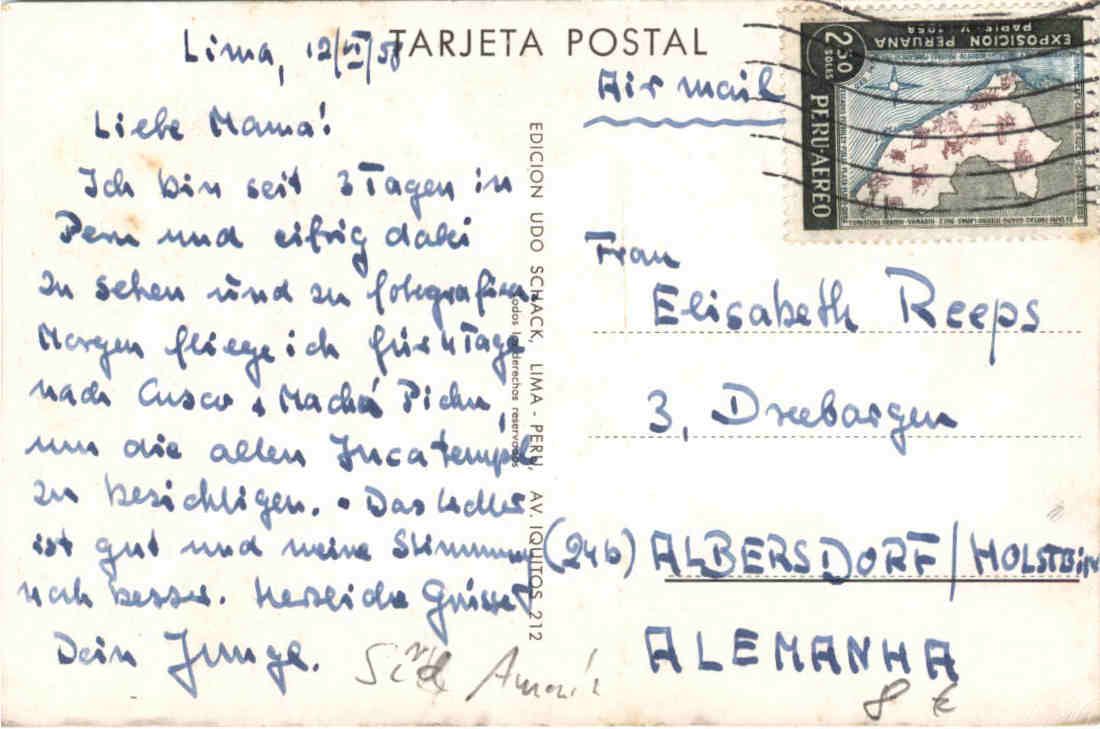 TARJETA POSTAL
Lima, 12/VI/58
Liebe Mama!
Ich bin seit 3 Tagen in
Peru und eifrig dabei
zu sehen und zu fotografieren.
Morgen fliege ich für 4 Tage
nach Cusco + Machu Pichu,
um die alten Inca tempel
zu besichtigen. • Das Wetter
ist gut und meine Stimmung
noch besser. Herzliche Grüsse!
Dein Junge.
EDICION UDO SCHACK, LIMA - PERU, AV. IQUITOS 212
todos los derechos reservados
Air mail
EXPOSICION PERUANA
PARIS - V - 1958
2.50
SOLES
PERU-AEREO
Frau
Elisabeth Reeps
3, Dreebargen
(24b) ALBERSDORF/HOLSTEIN
ALEMANHA
Süd
8 €